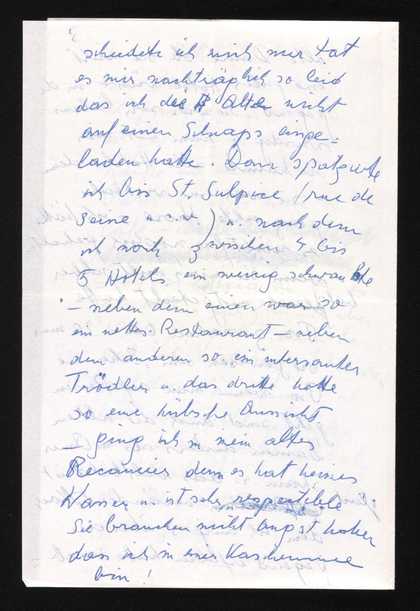 schiedete ich mich nur tat
es mir nachträglich so leid
das ich die Alte nicht
auf einen Schnaps einge-
laden hatte. Dann spatzierte
ich bis St. Sulpice (rue de
Seine u.s.w) u. nach dem
ich noch zwischen 4 bis
5 Hotels ein wenig schwankte
– neben dem einen war so
ein nettes Restaurant – neben
dem anderen so ein interesanter
Trödler u. das dritte hatte
so eine hübsche Aussicht
– ging ich in mein altes
Recamier denn es hat heisses
Wasser u. ist sehr respectible
Sie brauchen nicht angst haben
dass ich in einer Kaschemme
bin!